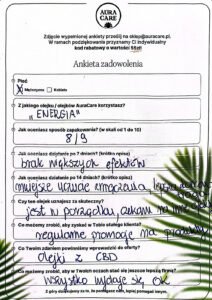 AURA
CARE
Zdjęcie wypełnionej ankiety prześlij na sklep@auracare.pl.
W ramach podziękowania przyznamy Ci indywidualny
kod rabatowy o wartości 50zł!
Ankieta zadowolenia
Płeć
Mężczyzna Kobieta
Z jakiego olejku / olejków AuraCare korzystasz?
"ENERGIA"
Jak oceniasz sposób zapakowania? (w skali od 1 do 10)
8/9
Jak oceniasz działanie po 7 dniach? (krótki opis)
brak większych efektów
Jak oceniasz działanie po 14 dniach? (krótki opis)
mniejsze uczucie zmęczenia,
Czy ten olejek uznajesz za skuteczny?
jest w porządku, czekam na
Co możemy zrobić, aby zyskać w Tobie stałego klienta?
regularne promocje na produkty
Co Twoim zdaniem powinniśmy wprowadzić do oferty?
olejki z CBD
Co możemy zrobić, aby w Twoich oczach stać się jeszcze lepszą firmą?
wszystko wydaje się OK
Z góry dziękujemy za to, że pomagasz nam, lepiej pomagać innym.